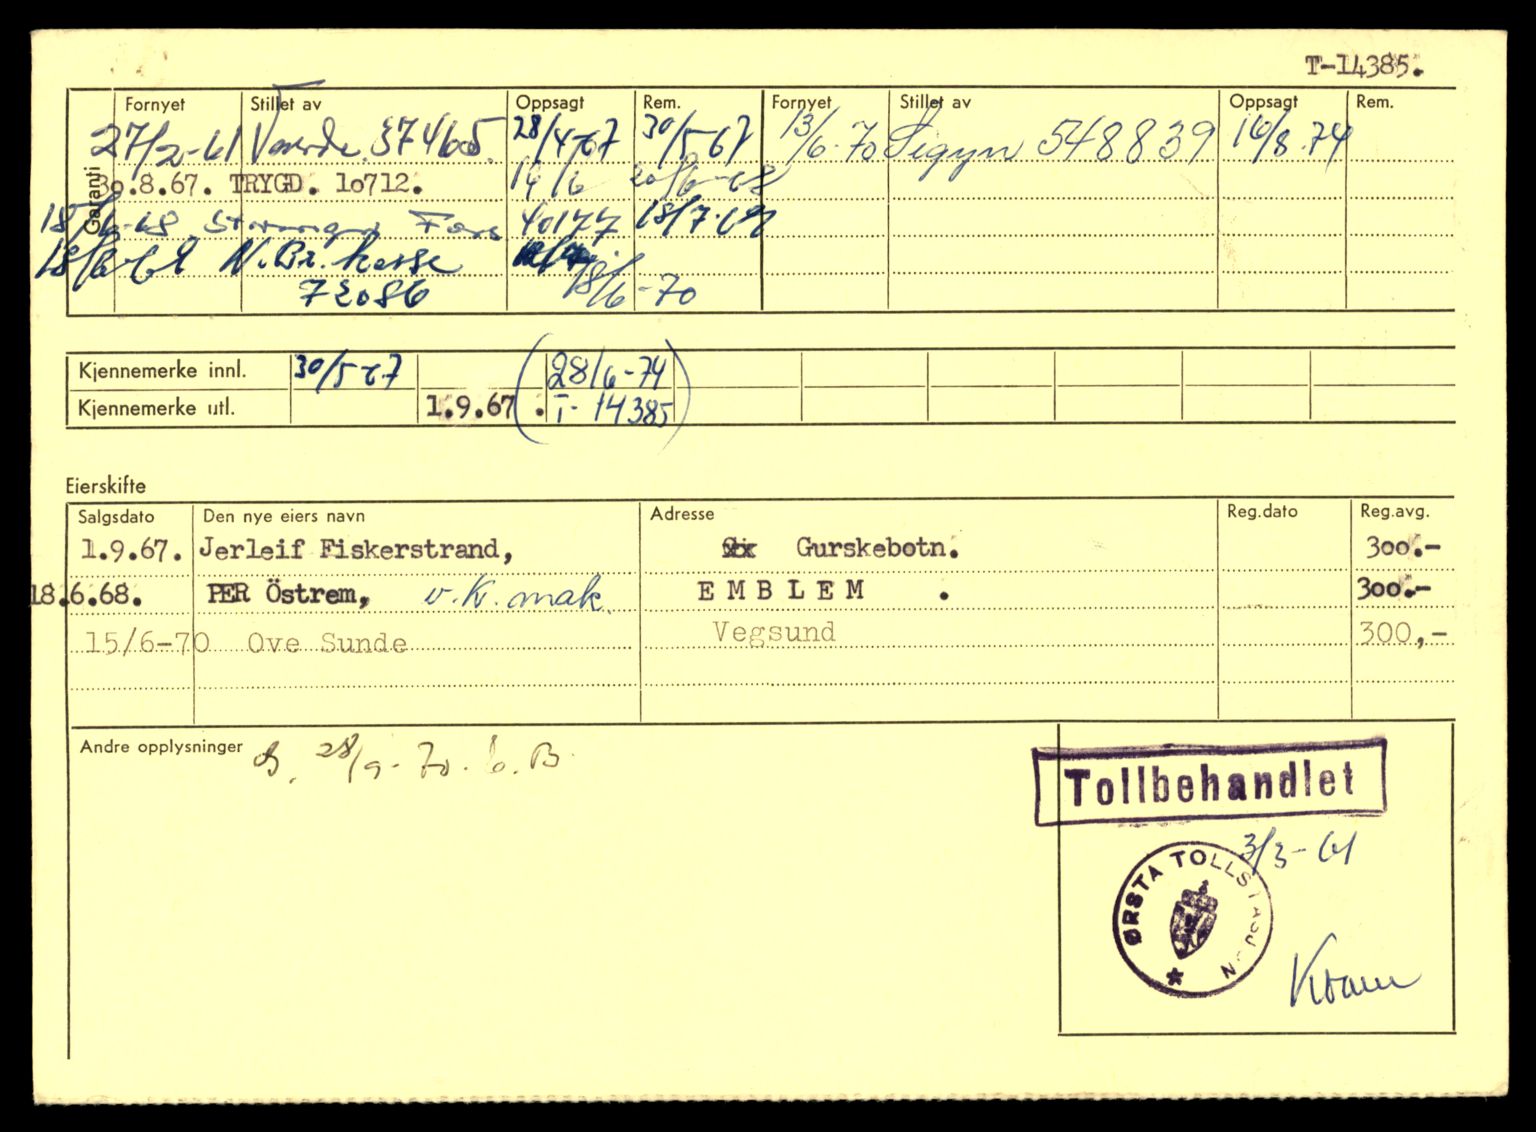 T-14385.
Garanti
Fornyet Stillet av Oppsagt Rem. Fornyet Stillet av Oppsagt Rem.
27/2-61 374605. 28/4-67 30/5-67 13/6-70 Sigyn 548839 16/8.74
30.8.67. TRYGD. 10712. 14/6 20/6-68
18/6-68 40177 18/7-69
N.Br.kasse
72086 18/6-70
Kjennemerke innl. 30/5-67 (28/6-74
Kjennemerke utl. 1.9.67 . T-14385)
Eierskifte
Salgsdato Den nye eiers navn Adresse Reg.dato Reg.avg.
1.9.67. Jerleif Fiskerstrand, Gurskebotn. 300.-
18.6.68. PER Östrem, v.k.mak. EMBLEM . 300.-
15/6-70 Ove Sunde Vegsund 300,-
Andre opplysninger 28/9-70. B.
Tollbehandlet
3/3-61
ØRSTA TOLLSTASJON